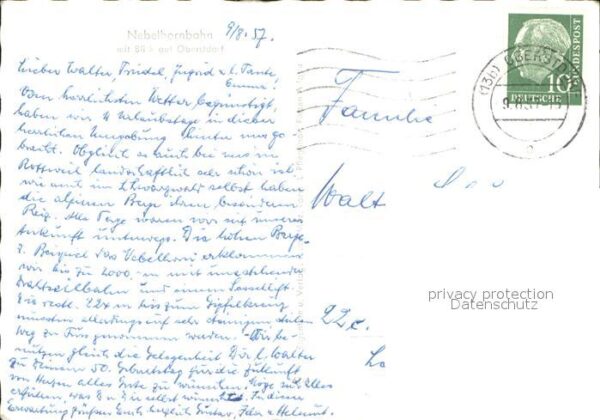 Nebelhornbahn
mit Blick auf Oberstdorf
9/8. 57.
Lieber Walter, Friedel, Ingrid u. l. Tante,
Emma!
Vom herrlichsten Wetter begünstigt,
haben wir 4 Urlaubstage in dieser
herrlichen Umgebung hinter uns ge-
bracht. Obgleich es auch bei uns in
Rottweil landschaftlich sehr schön ist
wie auch im Schwarzwald selbst haben
die alpinen Berge ihren besonderen
Reiz. Alle Tage waren wir seit unserer
Ankunft unterwegs. Die hohen Berge,
z. Beispiel das Nebelhorn erklommen
wir bis zu 2000 m mit umstehender
Drahtseilbahn und einem Sessellift.
Die restl. 224 m bis zum Gipfelkreuz
mussten allerdings auf sehr steinigem
Weg zu Fuss genommen werden. - Wir be-
nutzen gleich die Gelegenheit Dir l. Walter
zu Deinem 50. Geburtstag für die Zukunft
von Herzen alles Gute zu wünschen. Möge sich alles
erfüllen, was Du Dir selbst wünschst. In dieser
Erwartung grüßen Euch herzlich Gustav, Ida u. Helmut.
Familie
Walt
22c.
(13b) OBERSTDORF
9.8.57
10
DEUTSCHE
BUNDESPOST
privacy protection
Datenschutz